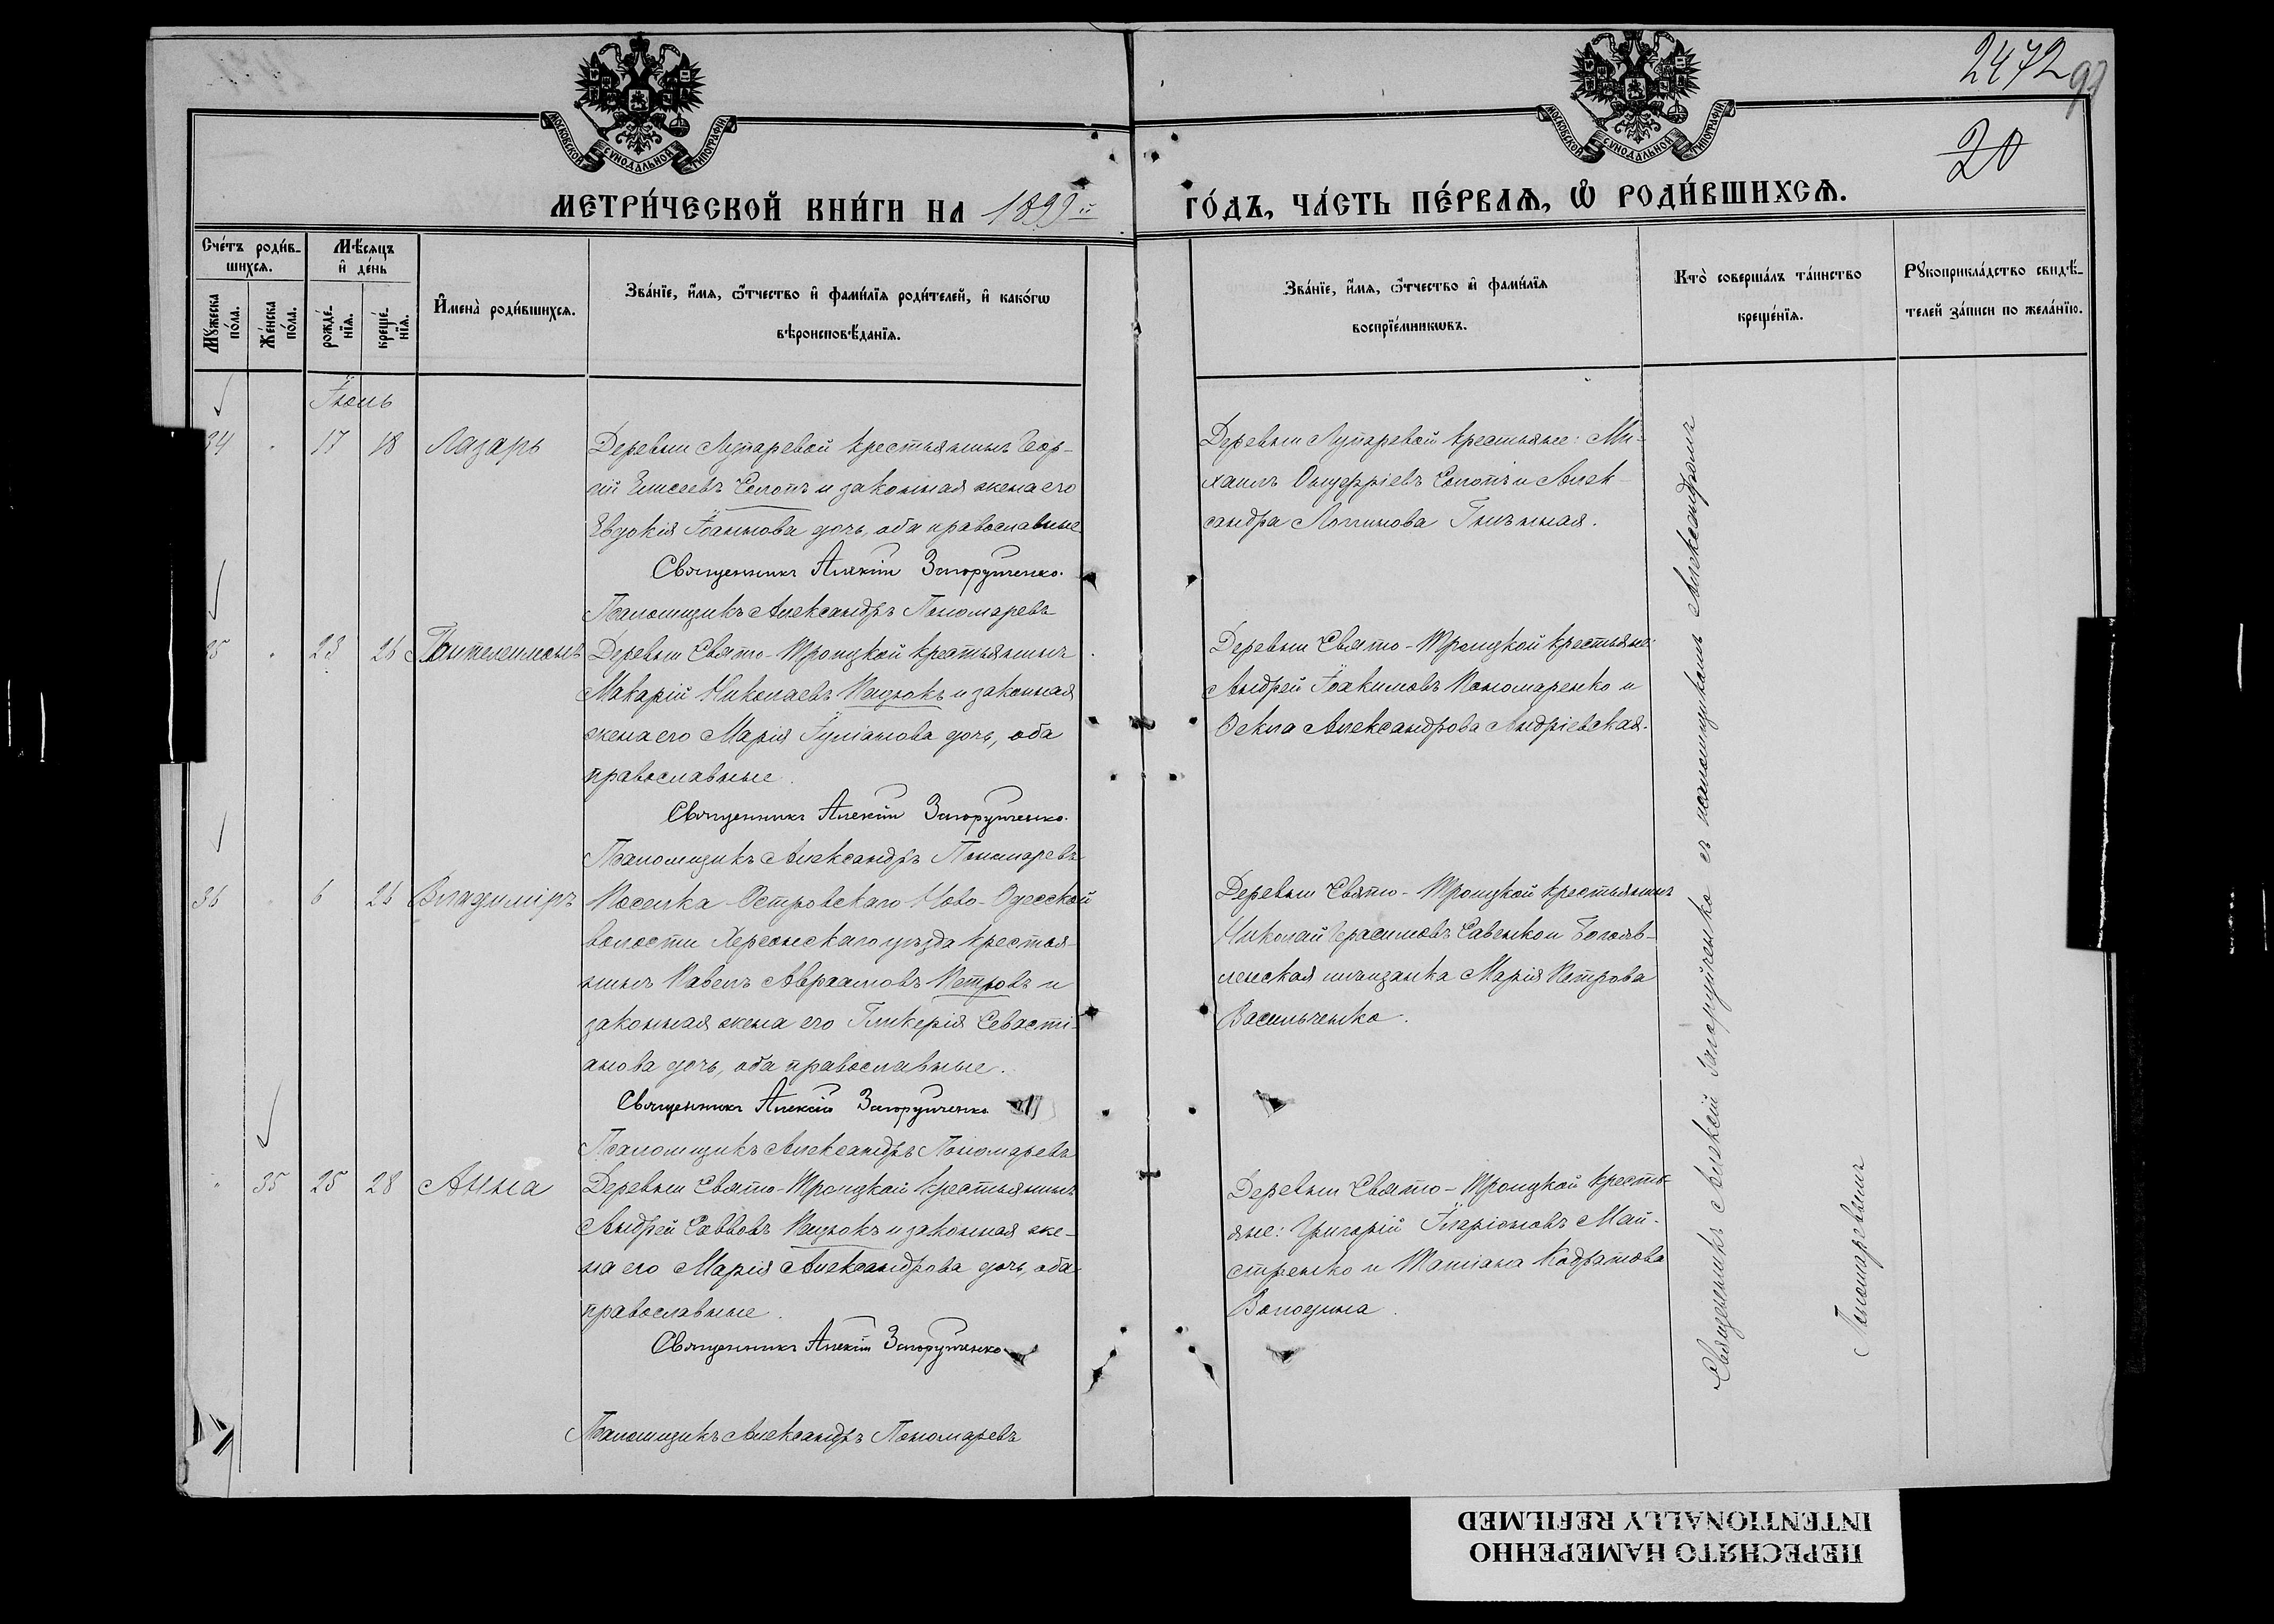 2472
99
20
МОСКОВСКОЙ СУНОДАЛЬНОЙ ТИПОГРАФІИ
МОСКОВСКОЙ СУНОДАЛЬНОЙ ТИПОГРАФІИ
МЕТРИ́ЧЕСКОЙ КНИ́ГИ НА 1899й
ГО́ДЪ, ЧА́СТЬ ПЕ́РВАѦ, Ѡ РОДИ́ВШИХСѦ.
Счéтъ роди́в-
шихсѧ.
Мꙋ́жеска пóла.
Жéнска пóла.
Мѣ́сѧцъ
и҆ дéнь
рождé-
нїѧ.
крещé-
нїѧ.
И҆менà роди́вшихсѧ.
Звáнїе, и҆́мѧ, ѻ҆́тчество и҆ фами́лїѧ роди́телей, и҆ какóгѡ
вѣроисповѣ́данїѧ.
Звáнїе, и҆́мѧ, ѻ҆́тчество и҆ фами́лїѧ
воспрїéмникѡвъ.
Ктò совершáлъ тáинство
крещéнїѧ.
Рꙋкоприклáдство свидѣ́-
телей зáписи по желáнїю.
Іюнь
34 17 18 Лазарь
Деревни Лупаревой крестьянинъ Геор-
гій Елисеевъ Сыпопъ и законная жена его
Евдокія Іоаннова дочь, оба православные
Священникъ Алексій Запорученко.
Псаломщикъ Александръ Пономаревъ
Деревни Лупаревой крестьяне: Ми-
хаилъ Онуфріевъ и Алек-
сандра Логинова
35 23 26 Пантелеимонъ
Деревни Свято-Троицкой крестьянинъ
Макарій Николаевъ Пацюкъ и законная
жена его Марія Іуліанова дочь, оба
православные.
Священникъ Алексій Запорученко.
Псаломщикъ Александръ Пономаревъ
Деревни Свято-Троицкой крестьяне:
Андрей Іоакимовъ Пономаренко и
Ѳекла Александрова Андріевская.
36 6 26 Владиміръ
Поселка Островскаго Ново-Одесской
волости Херсонскаго уѣзда крестья-
нинъ Павелъ Авраамовъ Петровъ и
законная жена его Гликерія Севасті-
анова дочь, оба православные.
Священникъ Алексій Запорученко
Псаломщикъ Александръ Пономаревъ
Деревни Свято-Троицкой крестьянинъ
Николай Герасимовъ Савенко и Богояв-
ленская мѣщанка Марія Петрова
Васильченко.
35 25 28 Анна
Деревни Свято-Троицкой крестьянинъ
Андрей Саввовъ Пацюкъ и законная же-
на его Марія Александрова дочь, оба
православные.
Священникъ Алексій Запорученко
Псаломщикъ Александръ Пономаревъ
Деревни Свято-Троицкой кресть-
яне: Григорій Иларіоновъ Май-
стренко и Татіана Кодратова
Володина.
Священникъ Алексій Запорученко съ псаломщикомъ Александромъ
Пономаревымъ
ПЕРЕСНЯТО НАМЕРЕННО
INTENTIONALLY REFILMED